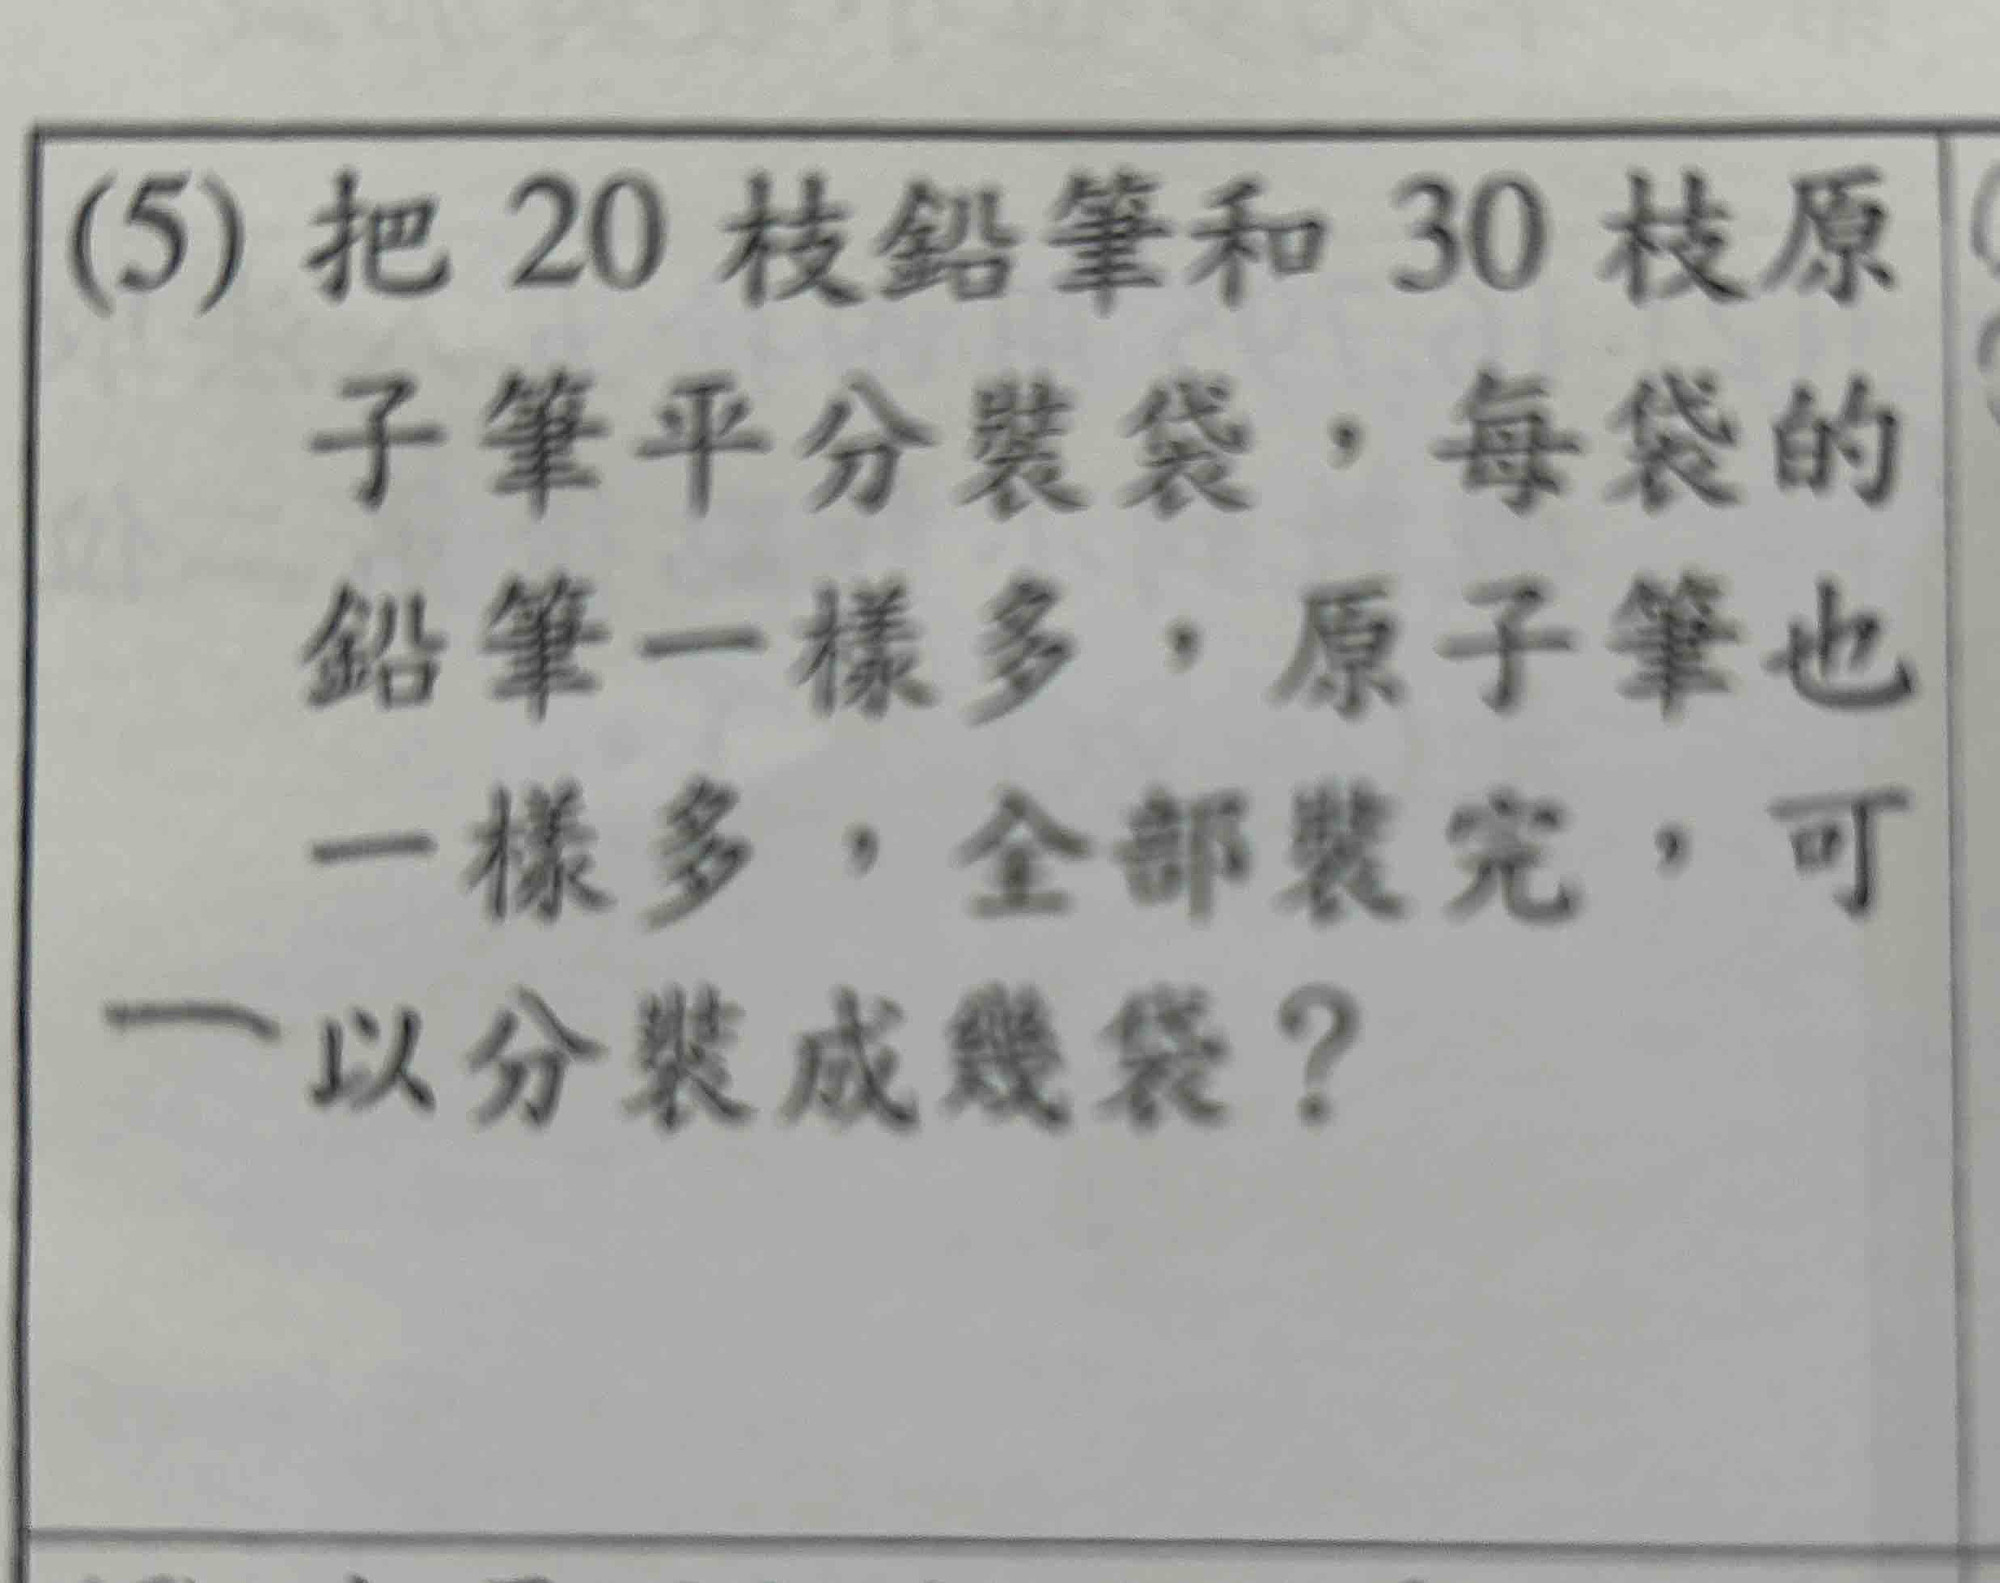 (5) 把 20 枝鉛筆和 30 枝原
子筆平分裝袋，每袋的
鉛筆一樣多，原子筆也
一樣多，全部裝完，可
以分裝成幾袋？